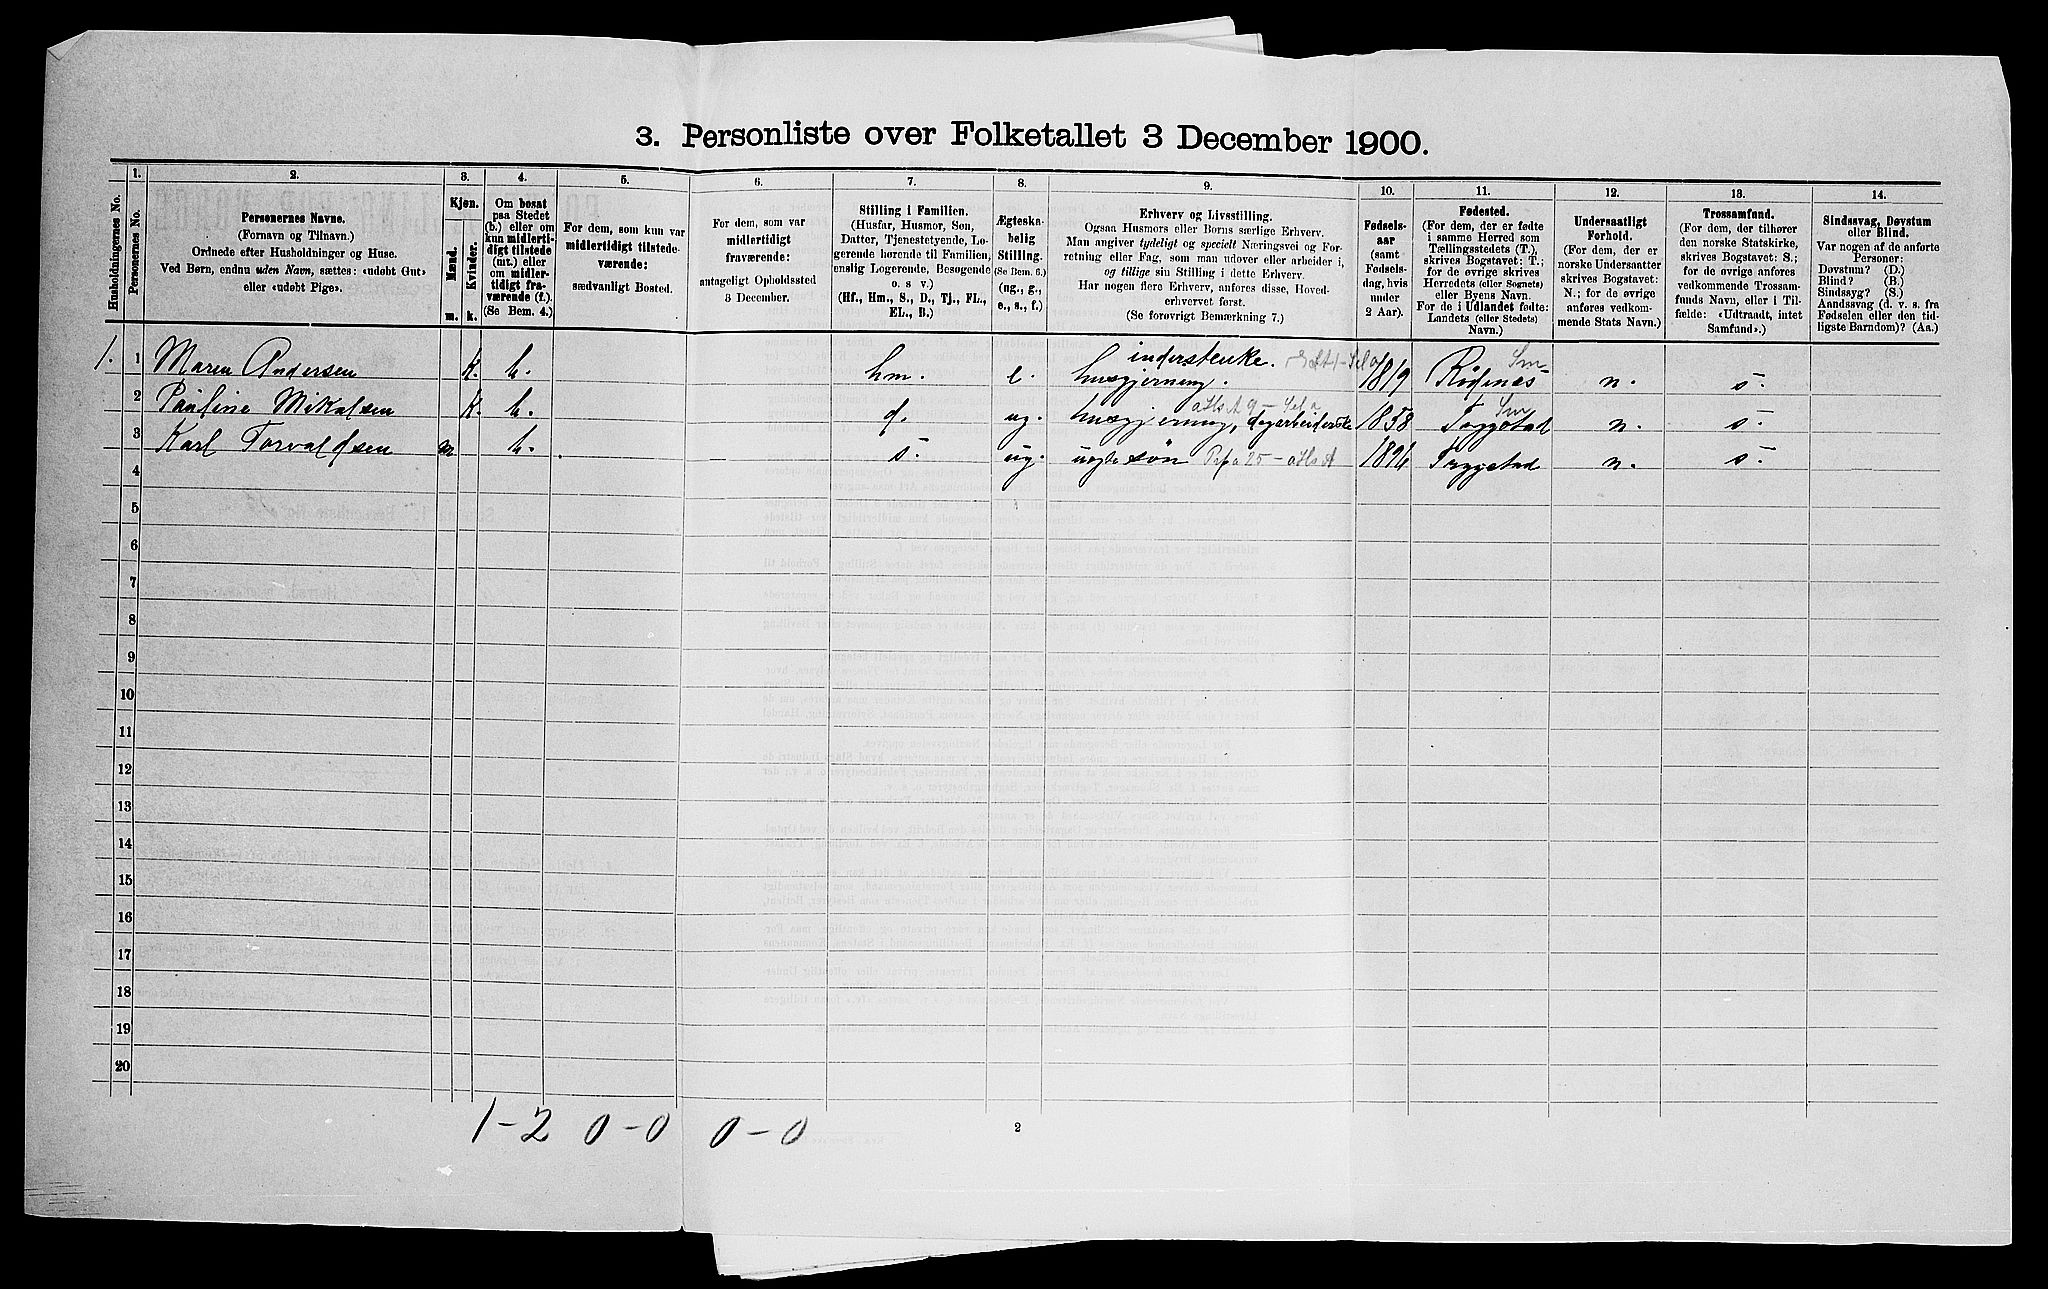 3. Personliste over Folketallet 3 December 1900.
Husholdningernes No.
1.
Personernes No.
2.
Personernes Navne.
(Fornavn og Tilnavn.)
Ordnede efter Husholdninger og Huse.
Ved Børn, endnu uden Navn, sættes: «udøbt Gut»
eller «udøbt Pige».
3.
Kjøn.
Mænd.
m.
Kvinder.
k.
4.
Om bosat
paa Stedet
(b.) eller om
kun midlerti-
digt tilstede
(mt.) eller
om midler-
tidigt fra-
værende (f.).
(Se Bem. 4.)
5.
For dem, som kun var
midlertidigt tilstede-
værende:
sædvanligt Bosted.
6.
For dem, som var
midlertidigt
fraværende:
antageligt Opholdssted
3 December.
7.
Stilling i Familien.
(Husfar, Husmor, Søn,
Datter, Tjenestetyende, Lo-
gerende hørende til Familien,
enslig Logerende, Besøgende
o. s v.)
(Hf., Hm., S., D., Tj., FL.,
EL., B.)
8.
Ægteska-
belig
Stilling.
(Se Bem. 6.)
(ug., g.,
e., s., f.)
9.
Erhverv og Livsstilling.
Ogsaa Husmors eller Børns særlige Erhverv.
Man angiver tydeligt og specielt Næringsvei og For-
retning eller Fag, som man udover eller arbeider i,
og tillige sin Stilling i dette Erhverv.
Har nogen flere Erhverv, anføres disse, Hoved-
erhvervet først.
(Se forøvrigt Bemærkning 7.)
10.
Fødsels-
aar
(samt
Fødsels-
dag, hvis
under
2 Aar).
11.
Fødested.
(For dem, der er fødte
i samme Herred som
Tællingsstedets (T.),
skrives Bogstavet: T.;
for de øvrige skrives
Herredets (eller Sognets)
eller Byens Navn.
For de i Udlandet fødte:
Landets (eller Stedets)
Navn.)
12.
Undersaatligt
Forhold.
(For dem, der er
norske Undersaatter
skrives Bogstavet:
N.; for de øvrige
anføres vedkom-
mende Stats Navn.)
13.
Trossamfund.
(For dem, der tilhører
den norske Statskirke,
skrives Bogstavet: S.;
for de øvrige anføres
vedkommende Trossam-
funds Navn, eller i Til-
fælde: «Udtraadt, intet
Samfund».)
14.
Sindssvag, Døvstum
eller Blind.
Var nogen af de anførte
Personer:
Døvstum? (D.)
Blind? (B.)
Sindssyg? (S.)
Aandssvag (d. v. s. fra
Fødselen eller den tid-
ligste Barndom)? (Aa.)
1. 1 Maren Andersen k. b. hm. e. husgjerning. inderstenke. 1819 Rødenes Sm n. s.
2 Pauline Mikalsen k. b. d. ug. husgjerning, dagarbeiderske 1858 Tryggstad Sm n. s.
3 Karl Torvaldsen m b. s. ug. uægte søn 1896 Tryggstad n. s.
4
5
6
7
8
9
10
11
12
13
14
15
16
17
18
19
20
1-2 0-0 0-0
2